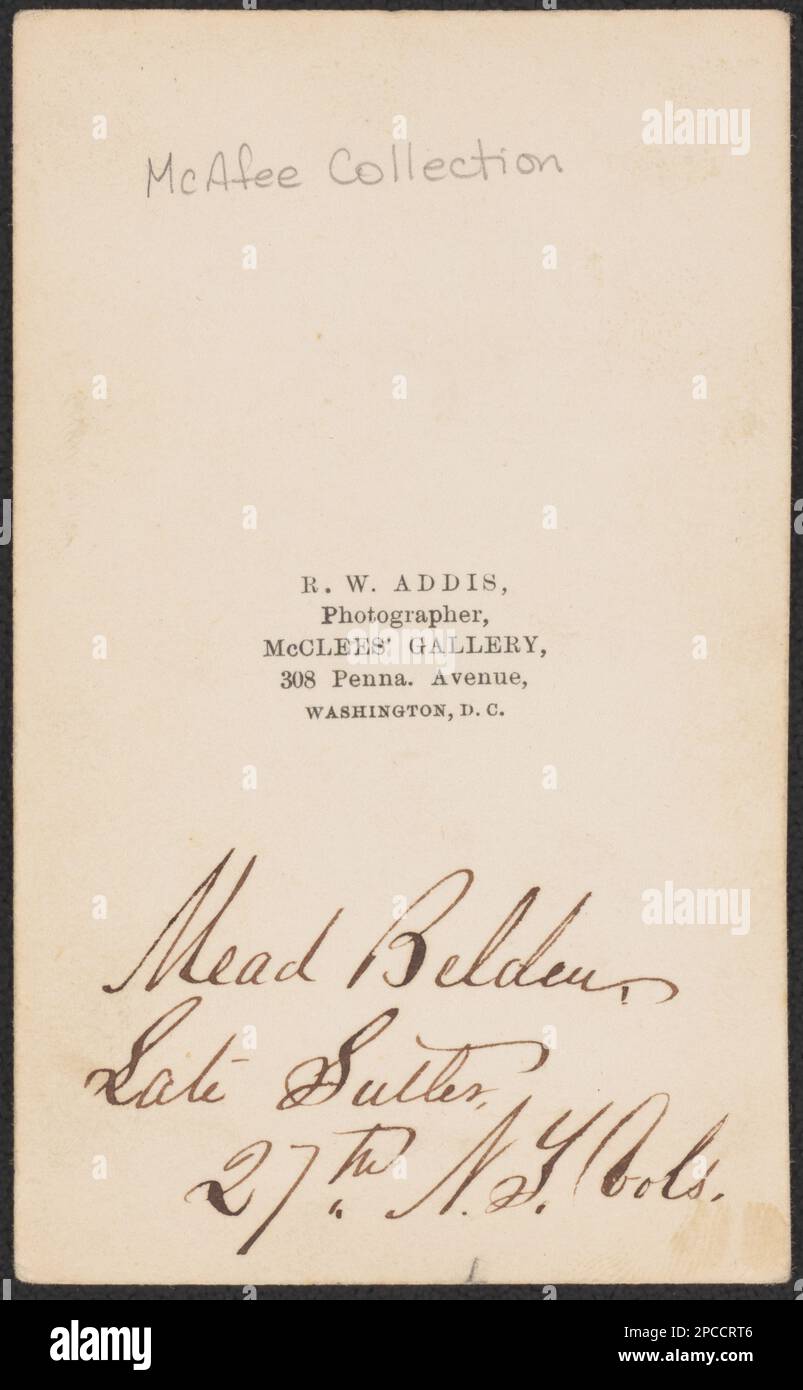 McAfee Collection
R. W. ADDIS,
Photographer,
McCLEES' GALLERY,
308 Penna. Avenue,
WASHINGTON, D. C.
Mead Belden,
Late Sutler,
27th. N.Y. Vols.
alamy
Image ID: 2PCCRT6
www.alamy.com